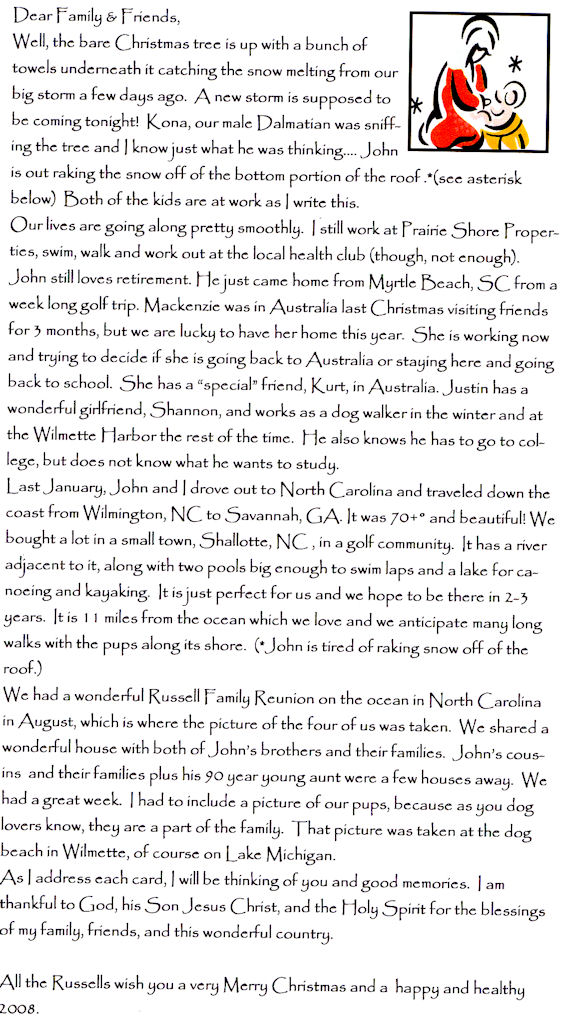 Dear Family & Friends,
Well, the bare Christmas tree is up with a bunch of
towels underneath it catching the snow melting from our
big storm a few days ago. A new storm is supposed to
be coming tonight! Kona, our male Dalmatian was sniff-
ing the tree and I know just what he was thinking.... John
is out raking the snow off of the bottom portion of the roof .*(see asterisk
below) Both of the kids are at work as I write this.
Our lives are going along pretty smoothly. I still work at Prairie Shore Proper-
ties, swim, walk and work out at the local health club (though, not enough).
John still loves retirement. He just came home from Myrtle Beach, SC from a
week long golf trip. Mackenzie was in Australia last Christmas visiting friends
for 3 months, but we are lucky to have her home this year. She is working now
and trying to decide if she is going back to Australia or staying here and going
back to school. She has a “special” friend, Kurt, in Australia. Justin has a
wonderful girlfriend, Shannon, and works as a dog walker in the winter and at
the Wilmette Harbor the rest of the time. He also knows he has to go to col-
lege, but does not know what he wants to study.
Last January, John and I drove out to North Carolina and traveled down the
coast from Wilmington, NC to Savannah, GA. It was 70+° and beautiful! We
bought a lot in a small town, Shallotte, NC , in a golf community. It has a river
adjacent to it, along with two pools big enough to swim laps and a lake for ca-
noeing and kayaking. It is just perfect for us and we hope to be there in 2-3
years. It is 11 miles from the ocean which we love and we anticipate many long
walks with the pups along its shore. (*John is tired of raking snow off of the
roof.)
We had a wonderful Russell Family Reunion on the ocean in North Carolina
in August, which is where the picture of the four of us was taken. We shared a
wonderful house with both of John’s brothers and their families. John’s cous-
ins and their families plus his 90 year young aunt were a few houses away. We
had a great week. I had to include a picture of our pups, because as you dog
lovers know, they are a part of the family. That picture was taken at the dog
beach in Wilmette, of course on Lake Michigan.
As I address each card, I will be thinking of you and good memories. I am
thankful to God, his Son Jesus Christ, and the Holy Spirit for the blessings
of my family, friends, and this wonderful country.
All the Russells wish you a very Merry Christmas and a happy and healthy
2008.